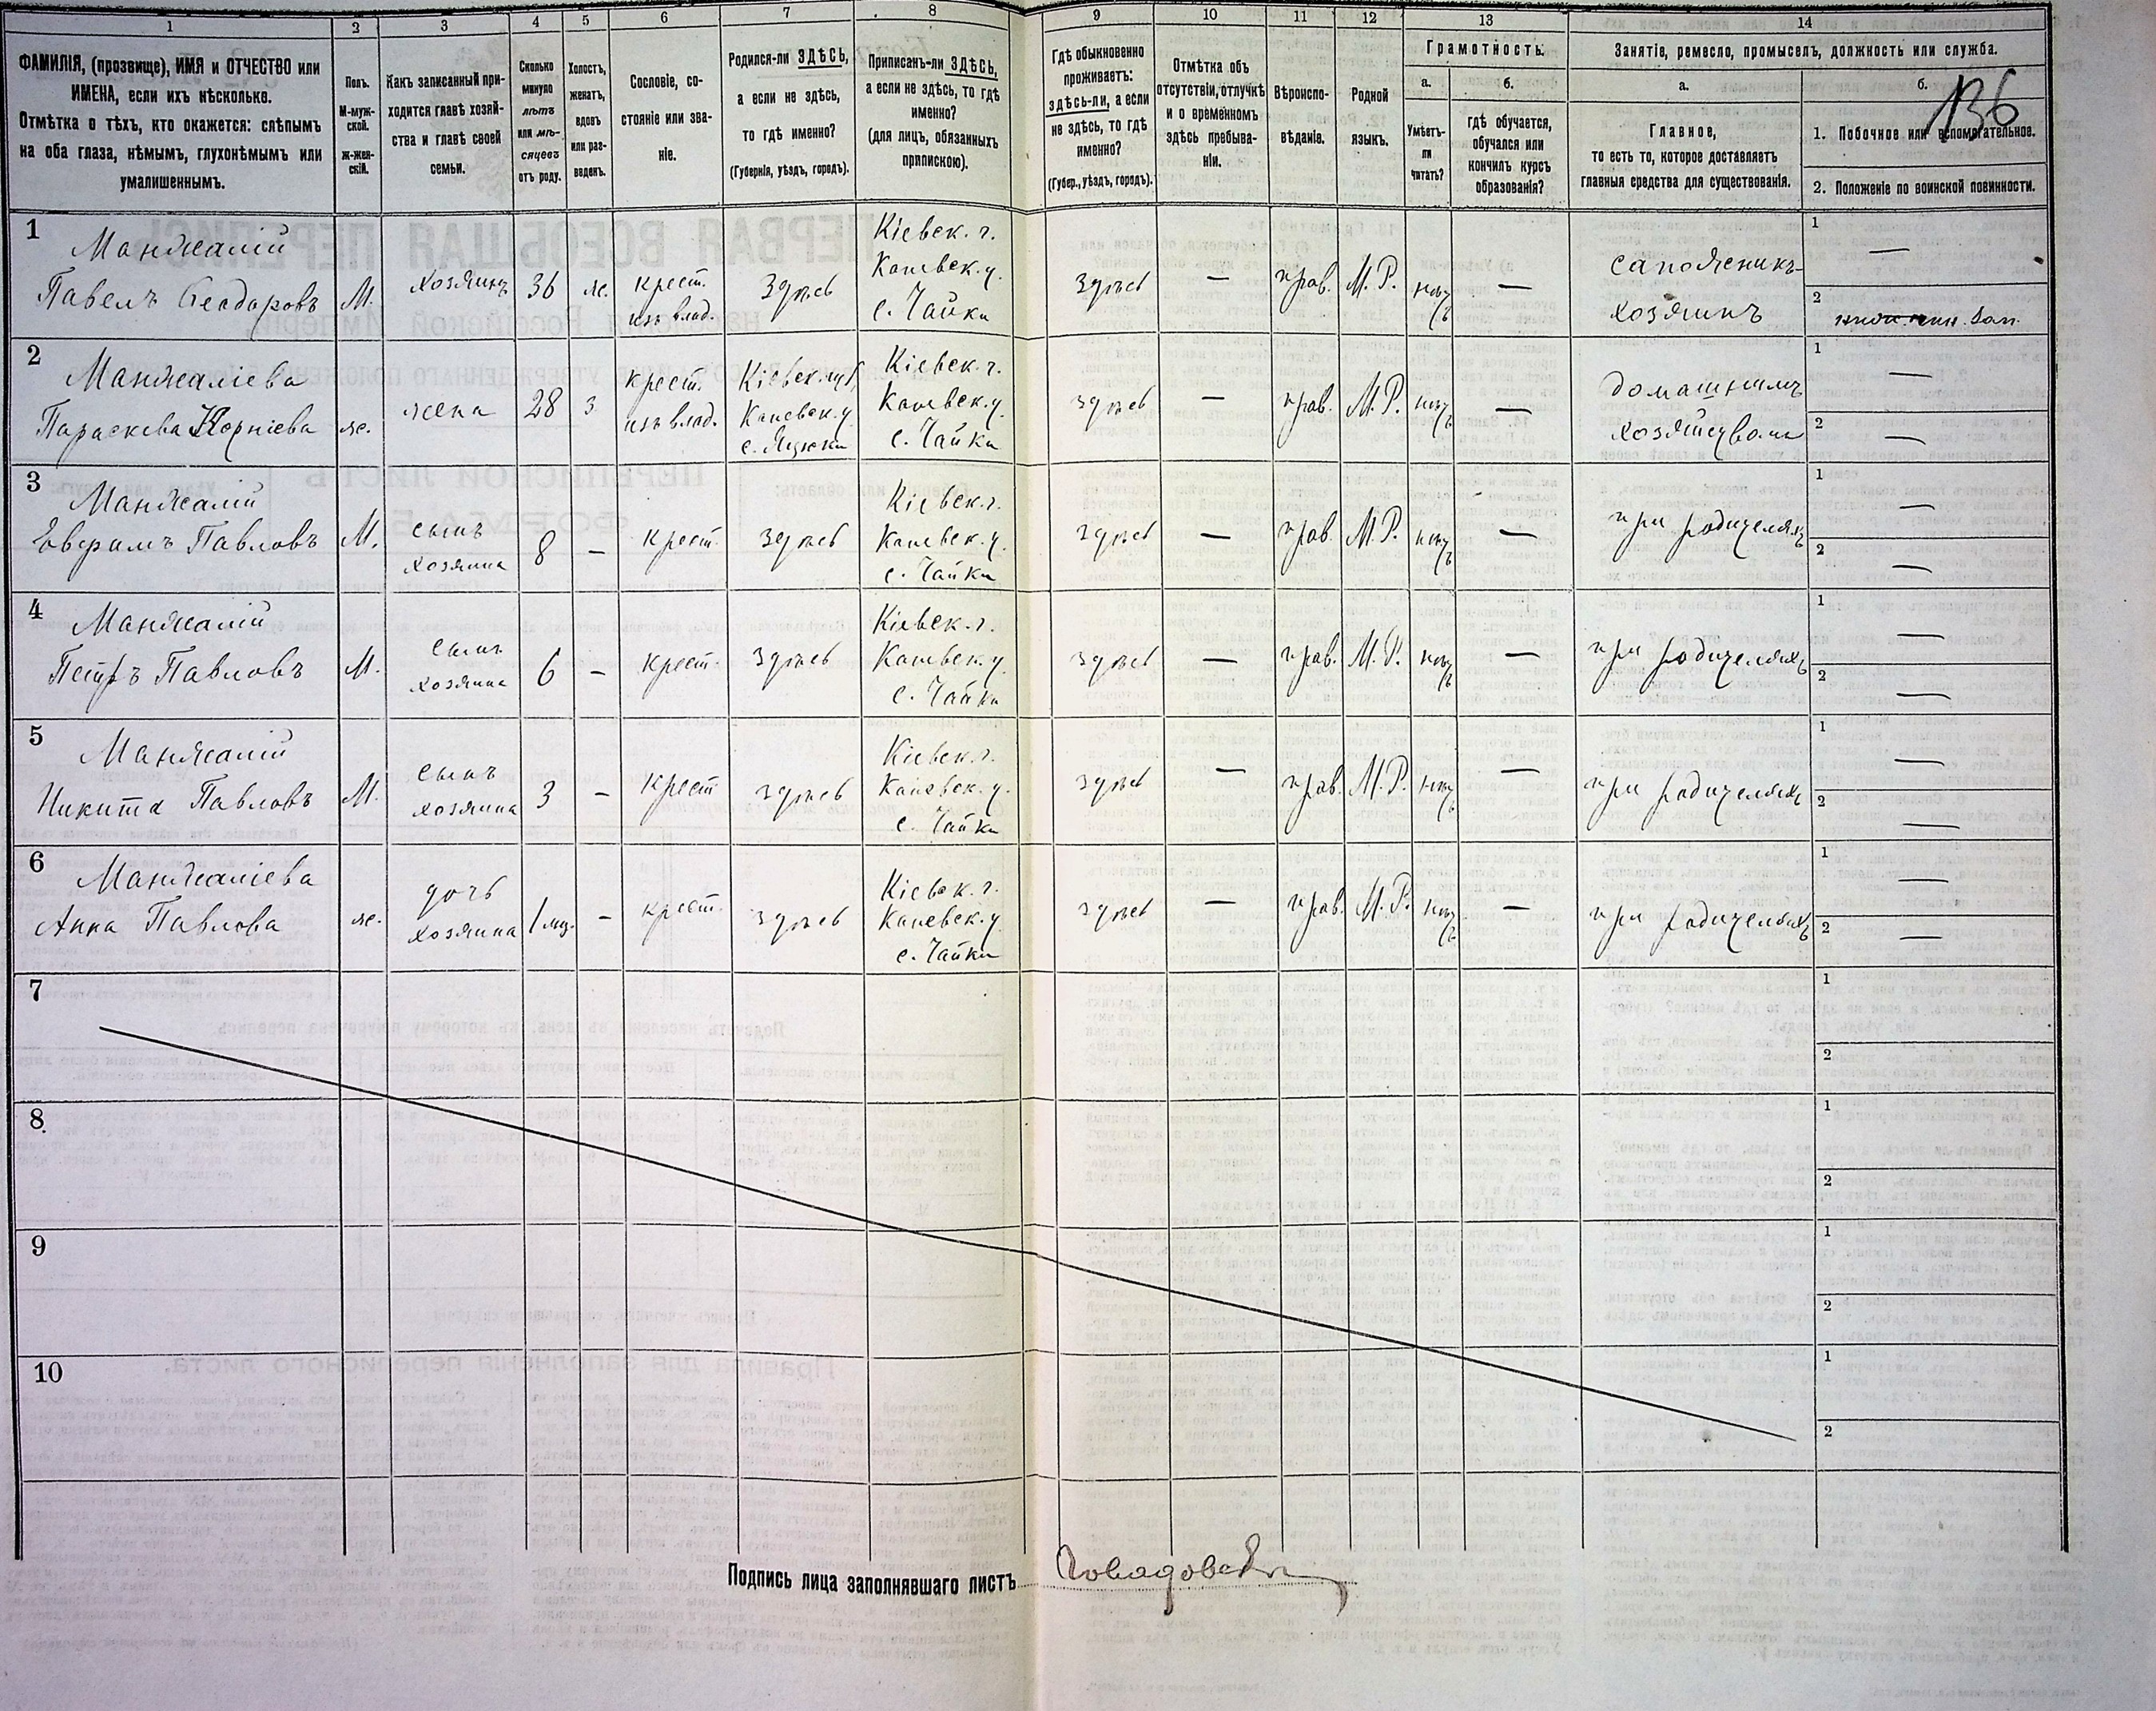 1 2 3 4 5 6 7 8 9 10 11 12 13 14
ФАМИЛІЯ, (прозвище), ИМЯ и ОТЧЕСТВО или
ИМЕНА, если ихъ нѣсколько.
Отмѣтка о тѣхъ, кто окажется: слѣпымъ
на оба глаза, нѣмымъ, глухонѣмымъ или
умалишеннымъ.
Полъ.
М-муж-
ской.
Ж-жен-
скій.
Какъ записанный при-
ходится главѣ хозяй-
ства и главѣ своей
семьи.
Сколько
минуло
лѣтъ
или мѣ-
сяцевъ
отъ роду.
Холостъ,
женатъ,
вдовъ
или раз-
веденъ.
Сословіе, со-
стояніе или зва-
ніе.
Родился-ли ЗДѢСЬ,
а если не здѣсь,
то гдѣ именно?
(Губернія, уѣздъ, городъ).
Приписанъ-ли ЗДѢСЬ,
а если не здѣсь, то гдѣ
именно?
(для лицъ, обязанныхъ
припискою).
Гдѣ обыкновенно
проживаетъ:
здѣсь-ли, а если
не здѣсь, то гдѣ
именно?
(Губер., уѣздъ, городъ).
Отмѣтка объ
отсутствіи, отлучкѣ
и о временномъ
здѣсь пребыва-
ніи.
Вѣроиспо-
вѣданіе.
Родной
языкъ.
Грамотность.
а.
Умѣетъ-
ли
читать?
б.
гдѣ обучается,
обучался или
кончилъ курсъ
образованія?
Занятіе, ремесло, промыселъ, должность или служба.
а.
Главное,
то есть то, которое доставляетъ
главныя средства для существованія.
б.
136
1. Побочное или вспомогательное.
2. Положеніе по воинской повинности.
1
Манжалій
Павелъ Ѳеодоровъ
М.
хозяинъ
36
ж.
крест.
изъ влад.
Здѣсь
Кіевск. г.
Каневск. у.
с. Чайки
Здѣсь
—
прав.
М. Р.
нѣтъ
—
сапожникъ-
хозяинъ
1 —
2
2
Манжаліева
Параскева Корніева
ж.
жена
28
з
крест.
изъ влад.
Кіевск. губ.
Каневск. у.
Кіевск. г.
Каневск. у.
с. Чайки
здѣсь
—
прав.
М. Р.
нѣтъ
—
домашнимъ
хозяйствомъ
1 —
2 —
3
Манжалій
Евфимъ Павловъ
М.
сынъ
хозяина
8
—
крест.
здѣсь
Кіевск. г.
Каневск. у.
с. Чайки
здѣсь
—
прав.
М. Р.
нѣтъ
—
при родителяхъ
1 —
2 —
4
Манжалій
Петръ Павловъ
М.
сынъ
хозяина
6
—
крест.
здѣсь
Кіевск. г.
Каневск. у.
с. Чайки
здѣсь
—
прав.
М. Р.
нѣтъ
—
при родителяхъ
1 —
2 —
5
Манжалій
Никита Павловъ
М.
сынъ
хозяина
3
—
крест
здѣсь
Кіевск. г.
Каневск. у.
с. Чайки
здѣсь
—
прав.
М. Р.
нѣтъ
—
при родителяхъ
1 —
2 —
6
Манжаліева
Анна Павлова
ж.
дочь
хозяина
1 мѣс.
—
крест.
здѣсь
Кіевск. г.
Каневск. у.
с. Чайки
здѣсь
—
прав.
М. Р.
нѣтъ
—
при родителяхъ
1 —
2 —
7
1
2
8
1
2
9
1
2
10
1
2
Подпись лица заполнявшаго листъ